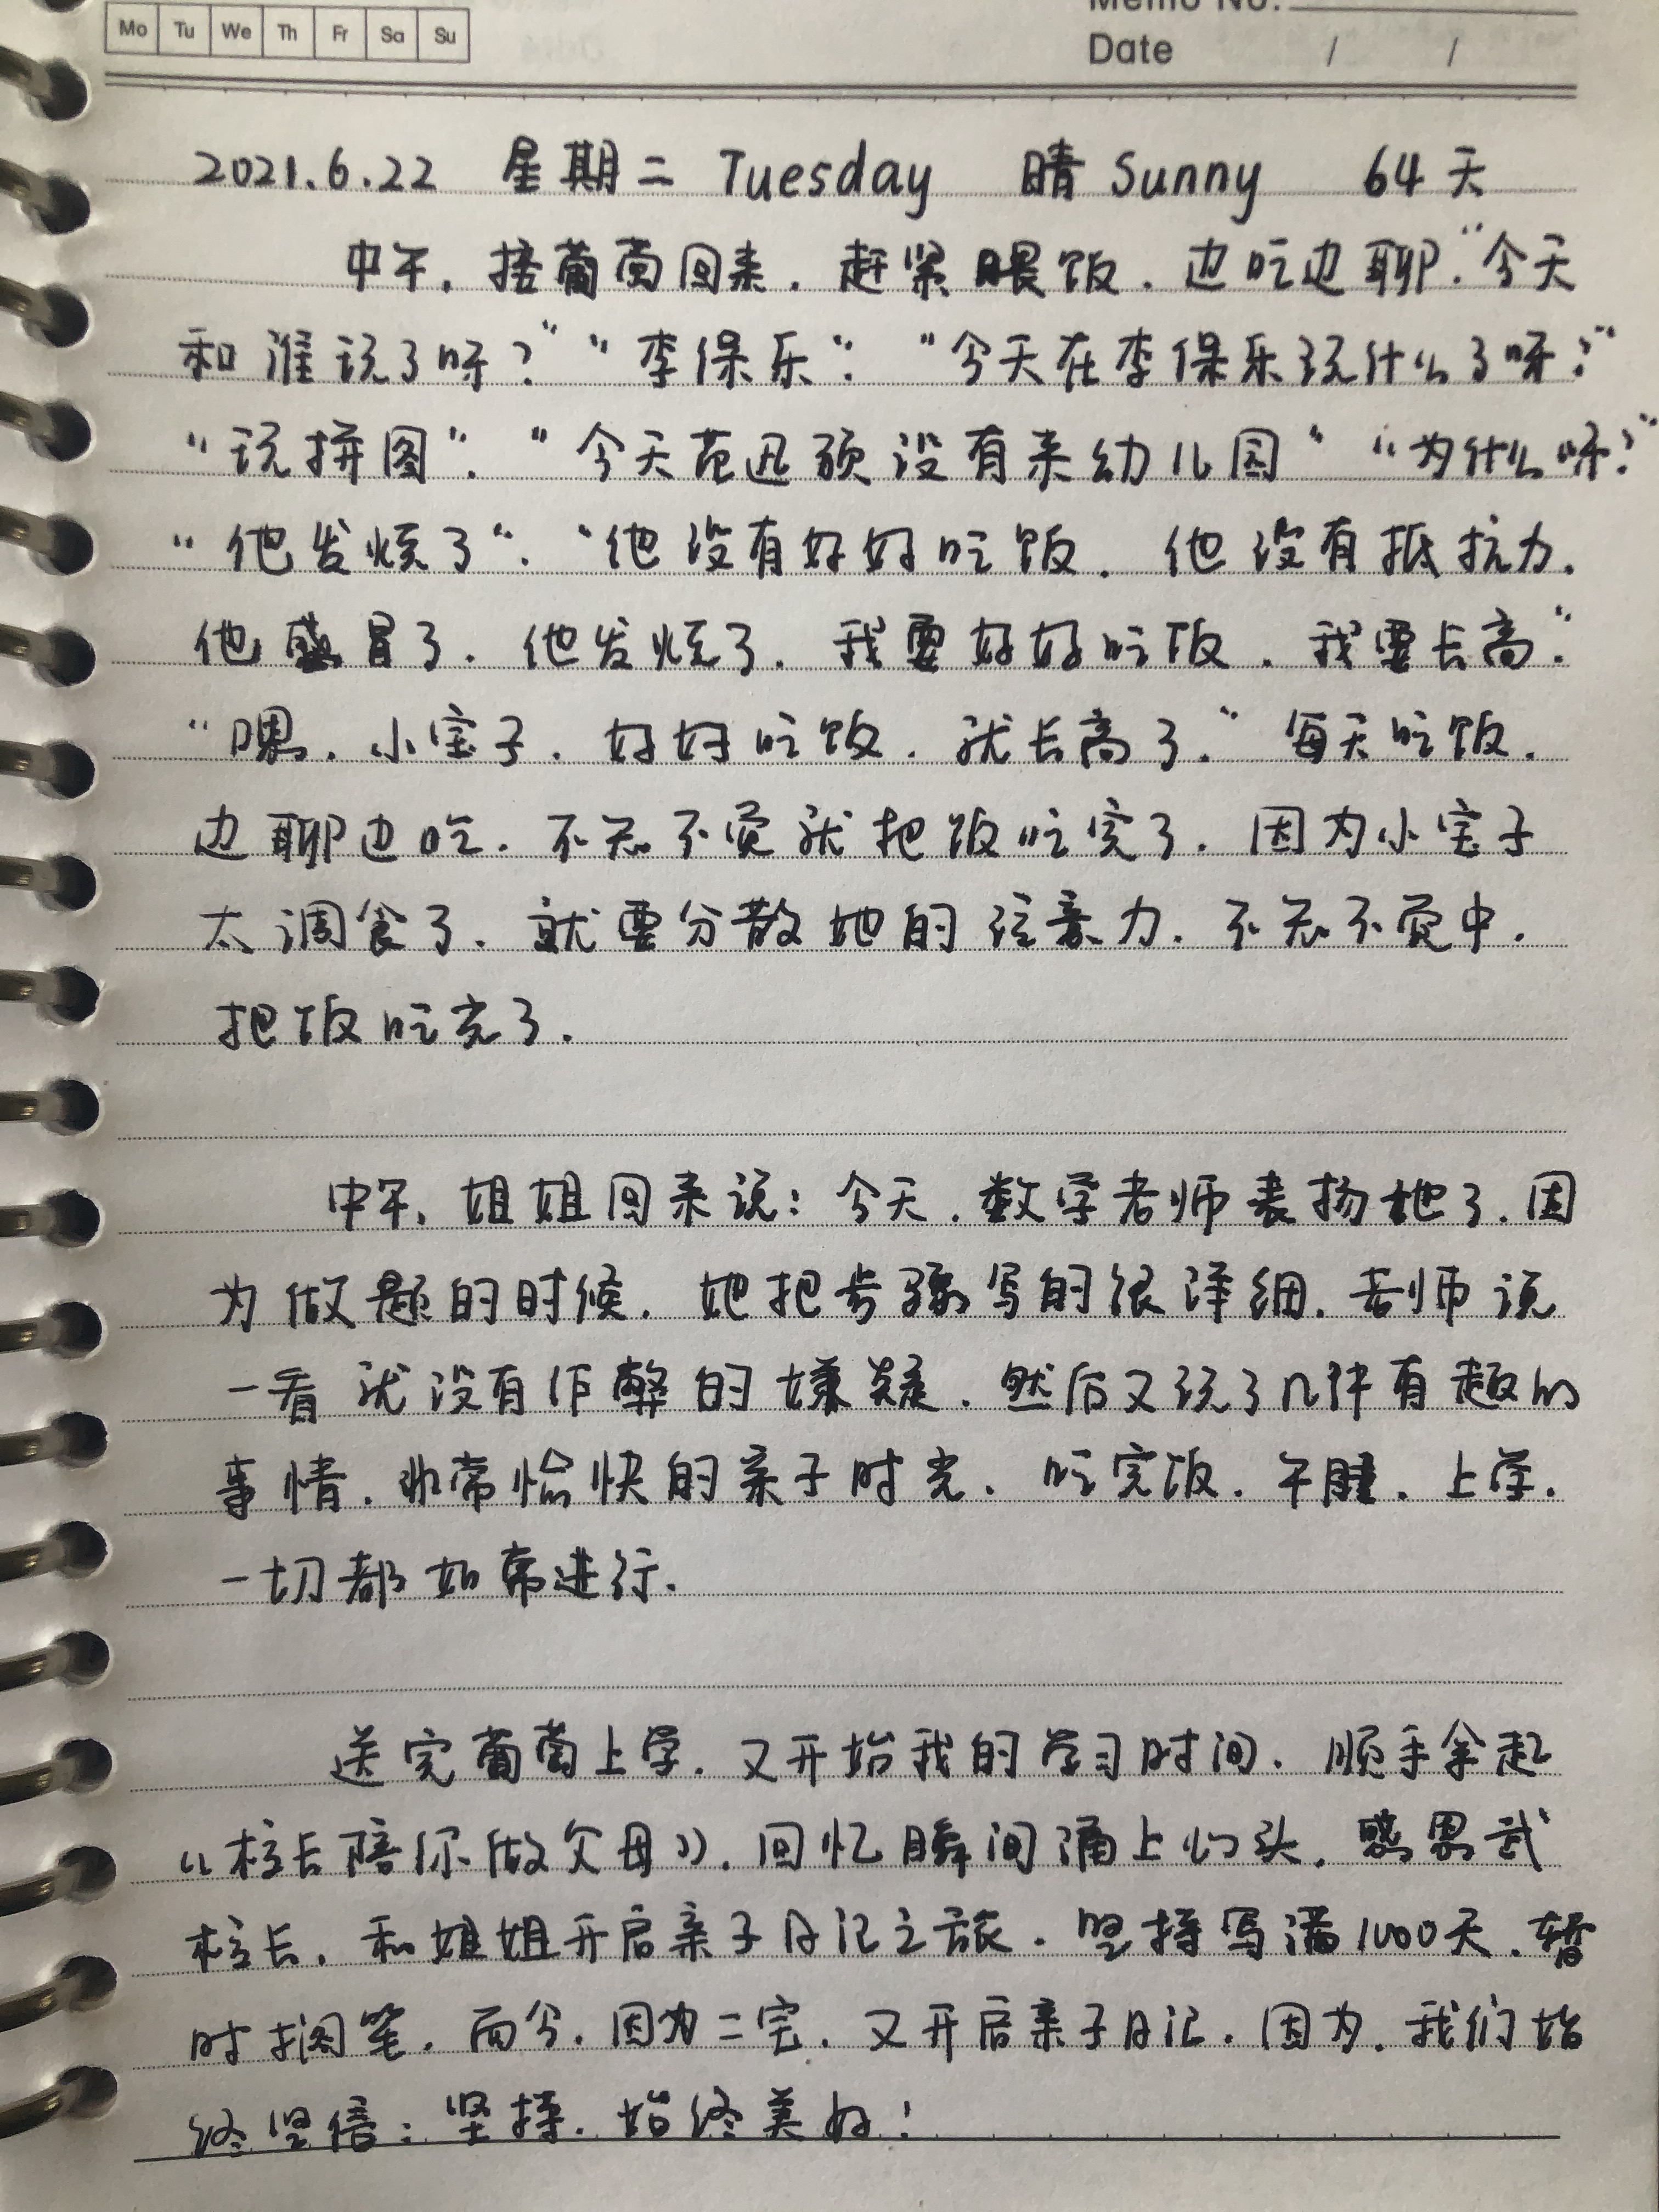 Mo Tu We Th Fr Sa Su
Memo No.
Date / /
2021.6.22 星期二 Tuesday 晴 Sunny 64天
中午，接葡萄回来，赶紧喂饭，边吃边聊，“今天
和谁玩了呀？”“李保乐”，“今天在李保乐玩什么了呀？”
“玩拼图”，“今天范迅硕没有来幼儿园”“为什么呀？”
“他发烧了”，“他没有好好吃饭，他没有抵抗力，
他感冒了，他发烧了，我要好好吃饭，我要长高”
“嗯，小宝子，好好吃饭，就长高了。”每天吃饭，
边聊边吃，不知不觉就把饭吃完了，因为小宝子
太调食了，就要分散她的注意力，不知不觉中，
把饭吃完了.
中午，姐姐回来说：今天，数学老师表扬她了，因
为做题的时候，她把步骤写的很详细，老师说
一看就没有作弊的嫌疑，然后又说了几件有趣的
事情，非常愉快的亲子时光，吃完饭，午睡，上学，
一切都如常进行.
送完葡萄上学，又开始我的学习时间，顺手拿起
《校长陪你做父母》，回忆瞬间涌上心头，感恩武
校长，和姐姐开启亲子日记之旅，坚持写满1000天，暂
时搁笔，而今，因为二宝，又开启亲子日记，因为，我们始
终坚信：坚持，始终美好！